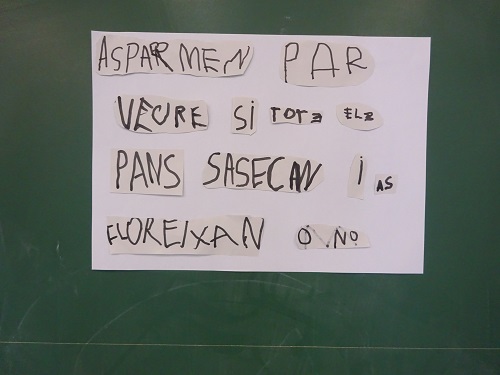 ASPARMEN PAR
VEURE SI TOTS ELS
PANS SASECAN I AS
FLOREIXAN O NO